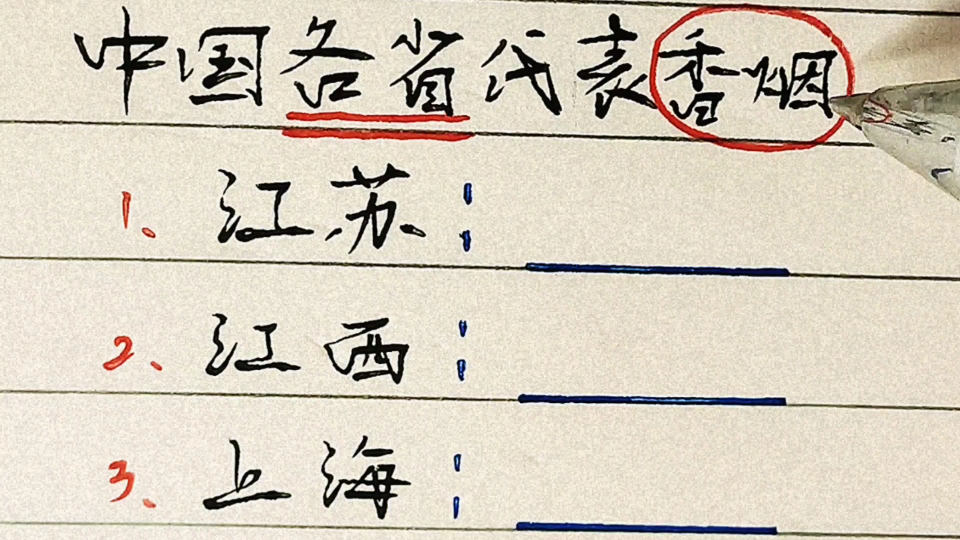 中国各省代表香烟
1、江苏：
2、江西：
3、上海：